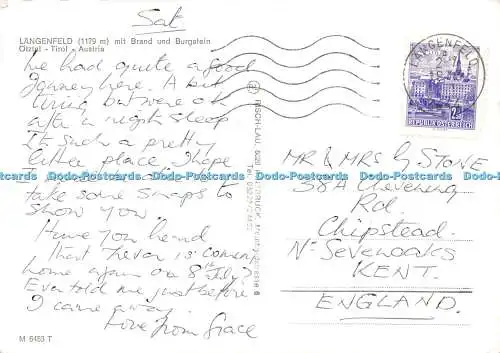 Sat
LÄNGENFELD (1179 m) mit Brand und Burgstein
Ötztal - Tirol - Austria
We had quite a good
Journey here. A bit
tiring but were ok
after a nights sleep
Its such a pretty
little place, I hope
take some snaps to
show you.
Have you heard
that Trevor is coming
home again on 8th July?
Eva told me just before
I came away.
Love from Grace
M 6453 T
RISCH-LAU
LÄNGENFELD
2 S
REPUBLIK ÖSTERREICH
MR & MRS G STONE
38A Rd.
Chipstead.
Nr Sevenoaks
KENT.
ENGLAND.
Dodo-Postcards Dodo-Postcards Dodo-Postcards Dodo-Postcards